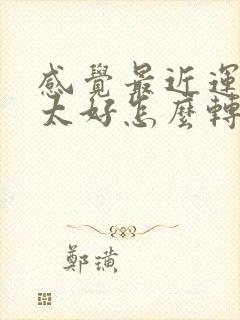 感覺最近運
太好怎麼轉
鄭璜